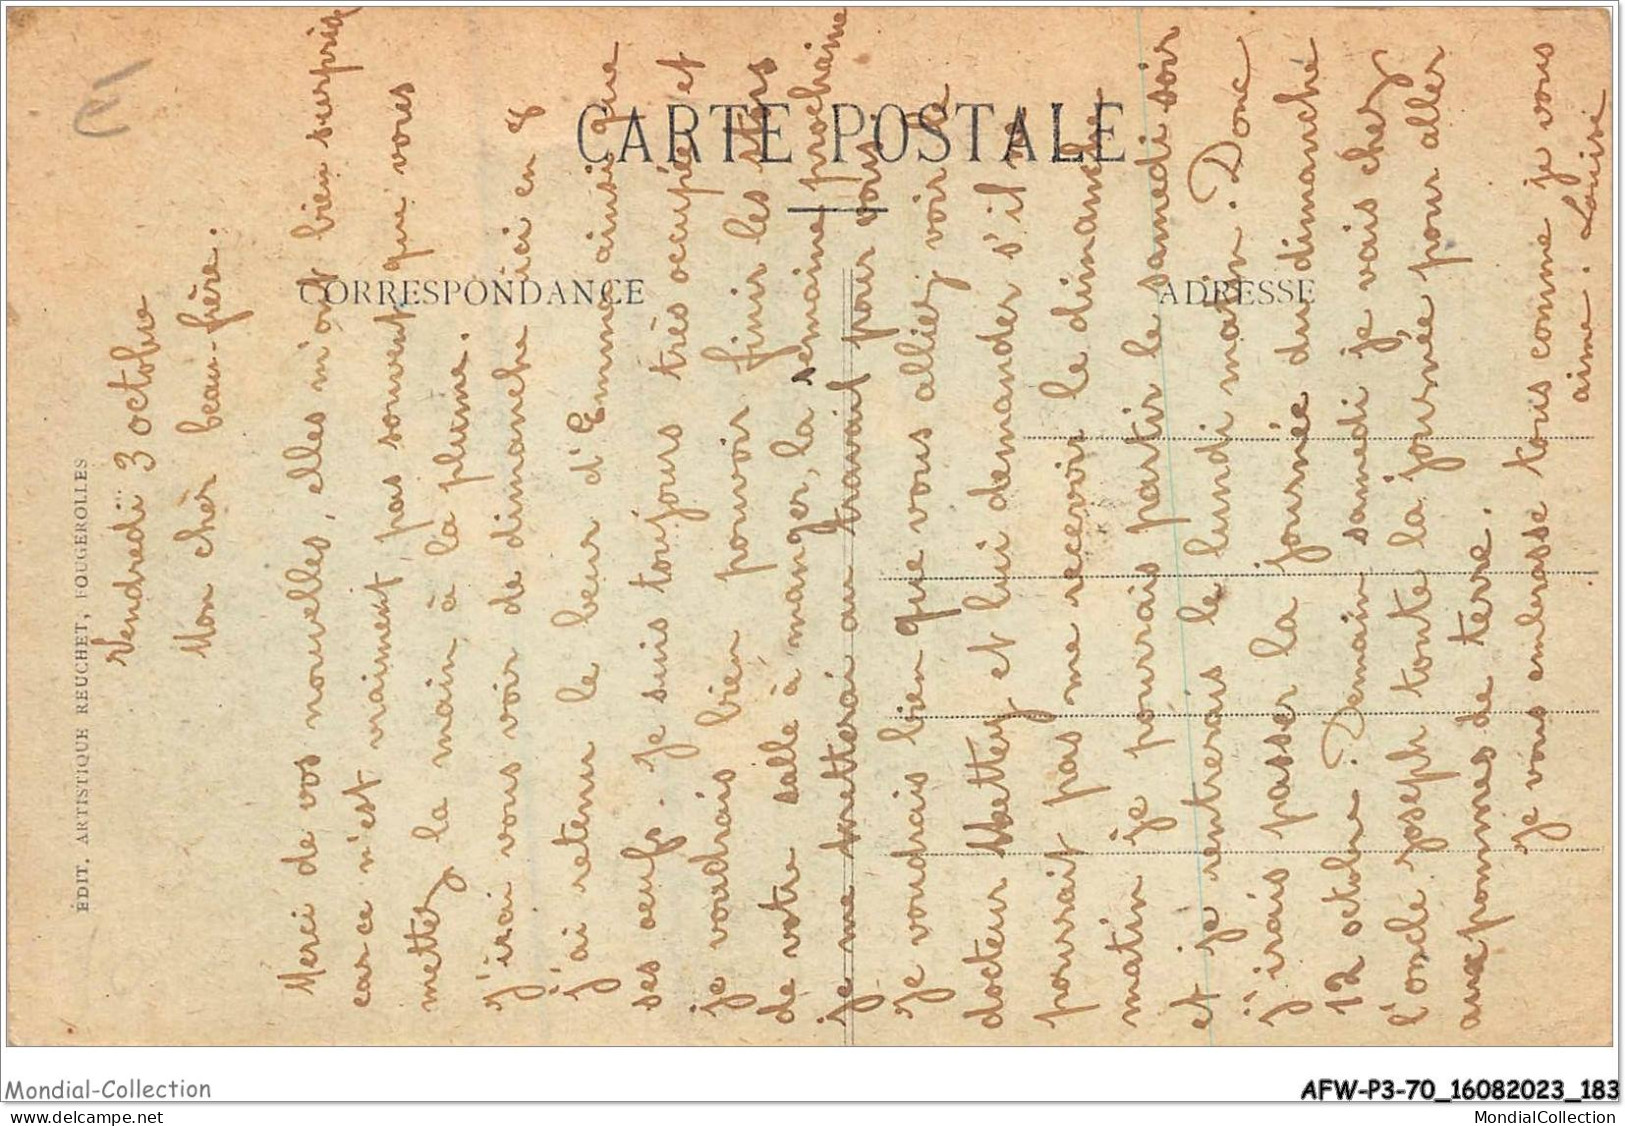 CARTE POSTALE
CORRESPONDANCE
ADRESSE
ÉDIT. ARTISTIQUE REUCHET, FOUGEROLLES
Vendredi 3 octobre
Mon cher beau-frère.
Merci de vos nouvelles, elles m'ont bien surprise
car ce n'est vraiment pas souvent que vous
mettez la main à la plume.
J'irai vous voir de dimanche ici en 8
j'ai retenu le beur d'Emma ainsi que
ses oeufs. Je suis toujours très occupée et
je voudrais bien pouvoir finir les stors
de votre salle à manger, la semaine prochaine
je me metterai au travail pour vous.
Je voudrais bien que vous alliez voir le
docteur Maettey et lui demander s'il ne
pourrait pas me recevoir le dimanche
matin je pourrais partir le samedi soir
et je rentrerais le lundi matin. Donc
j'irais passer la journée du dimanche
12 octobre. Demain samedi je vais chez
l'oncle Joseph toute la journée pour aller
aux pommes de terre.
Je vous embrasse tous comme je vous
aime. Louise
Mondial-Collection
AFW-P3-70_16082023_183
www.delcampe.net
MondialCollection